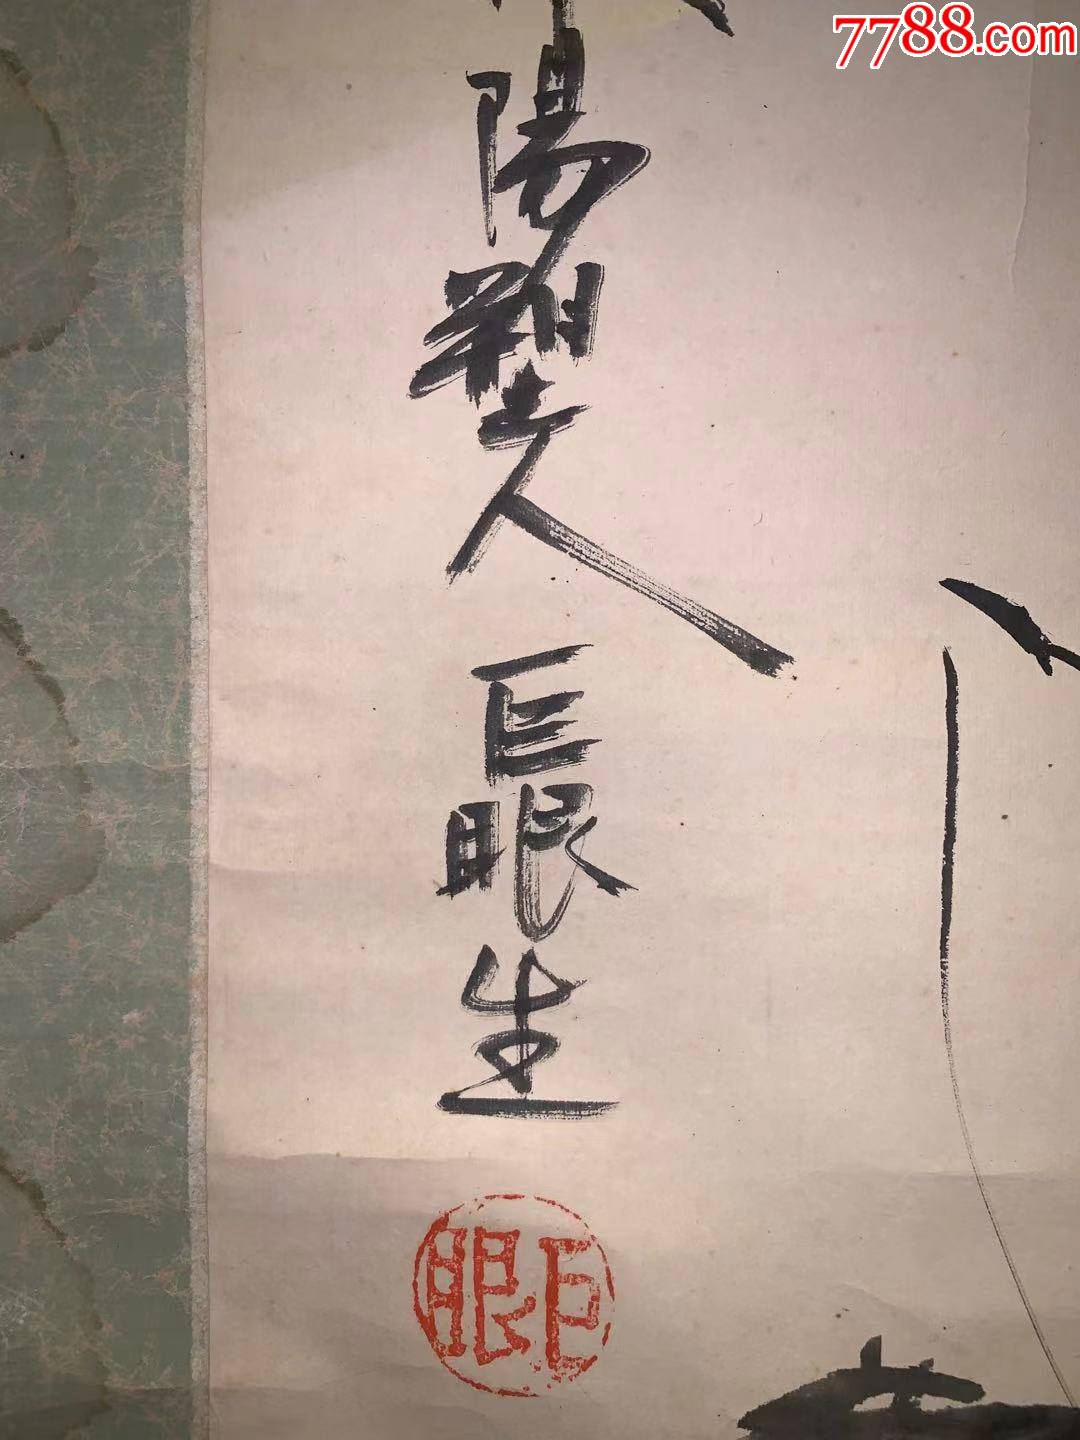 7788.com
陽人 巨眼生
巨眼